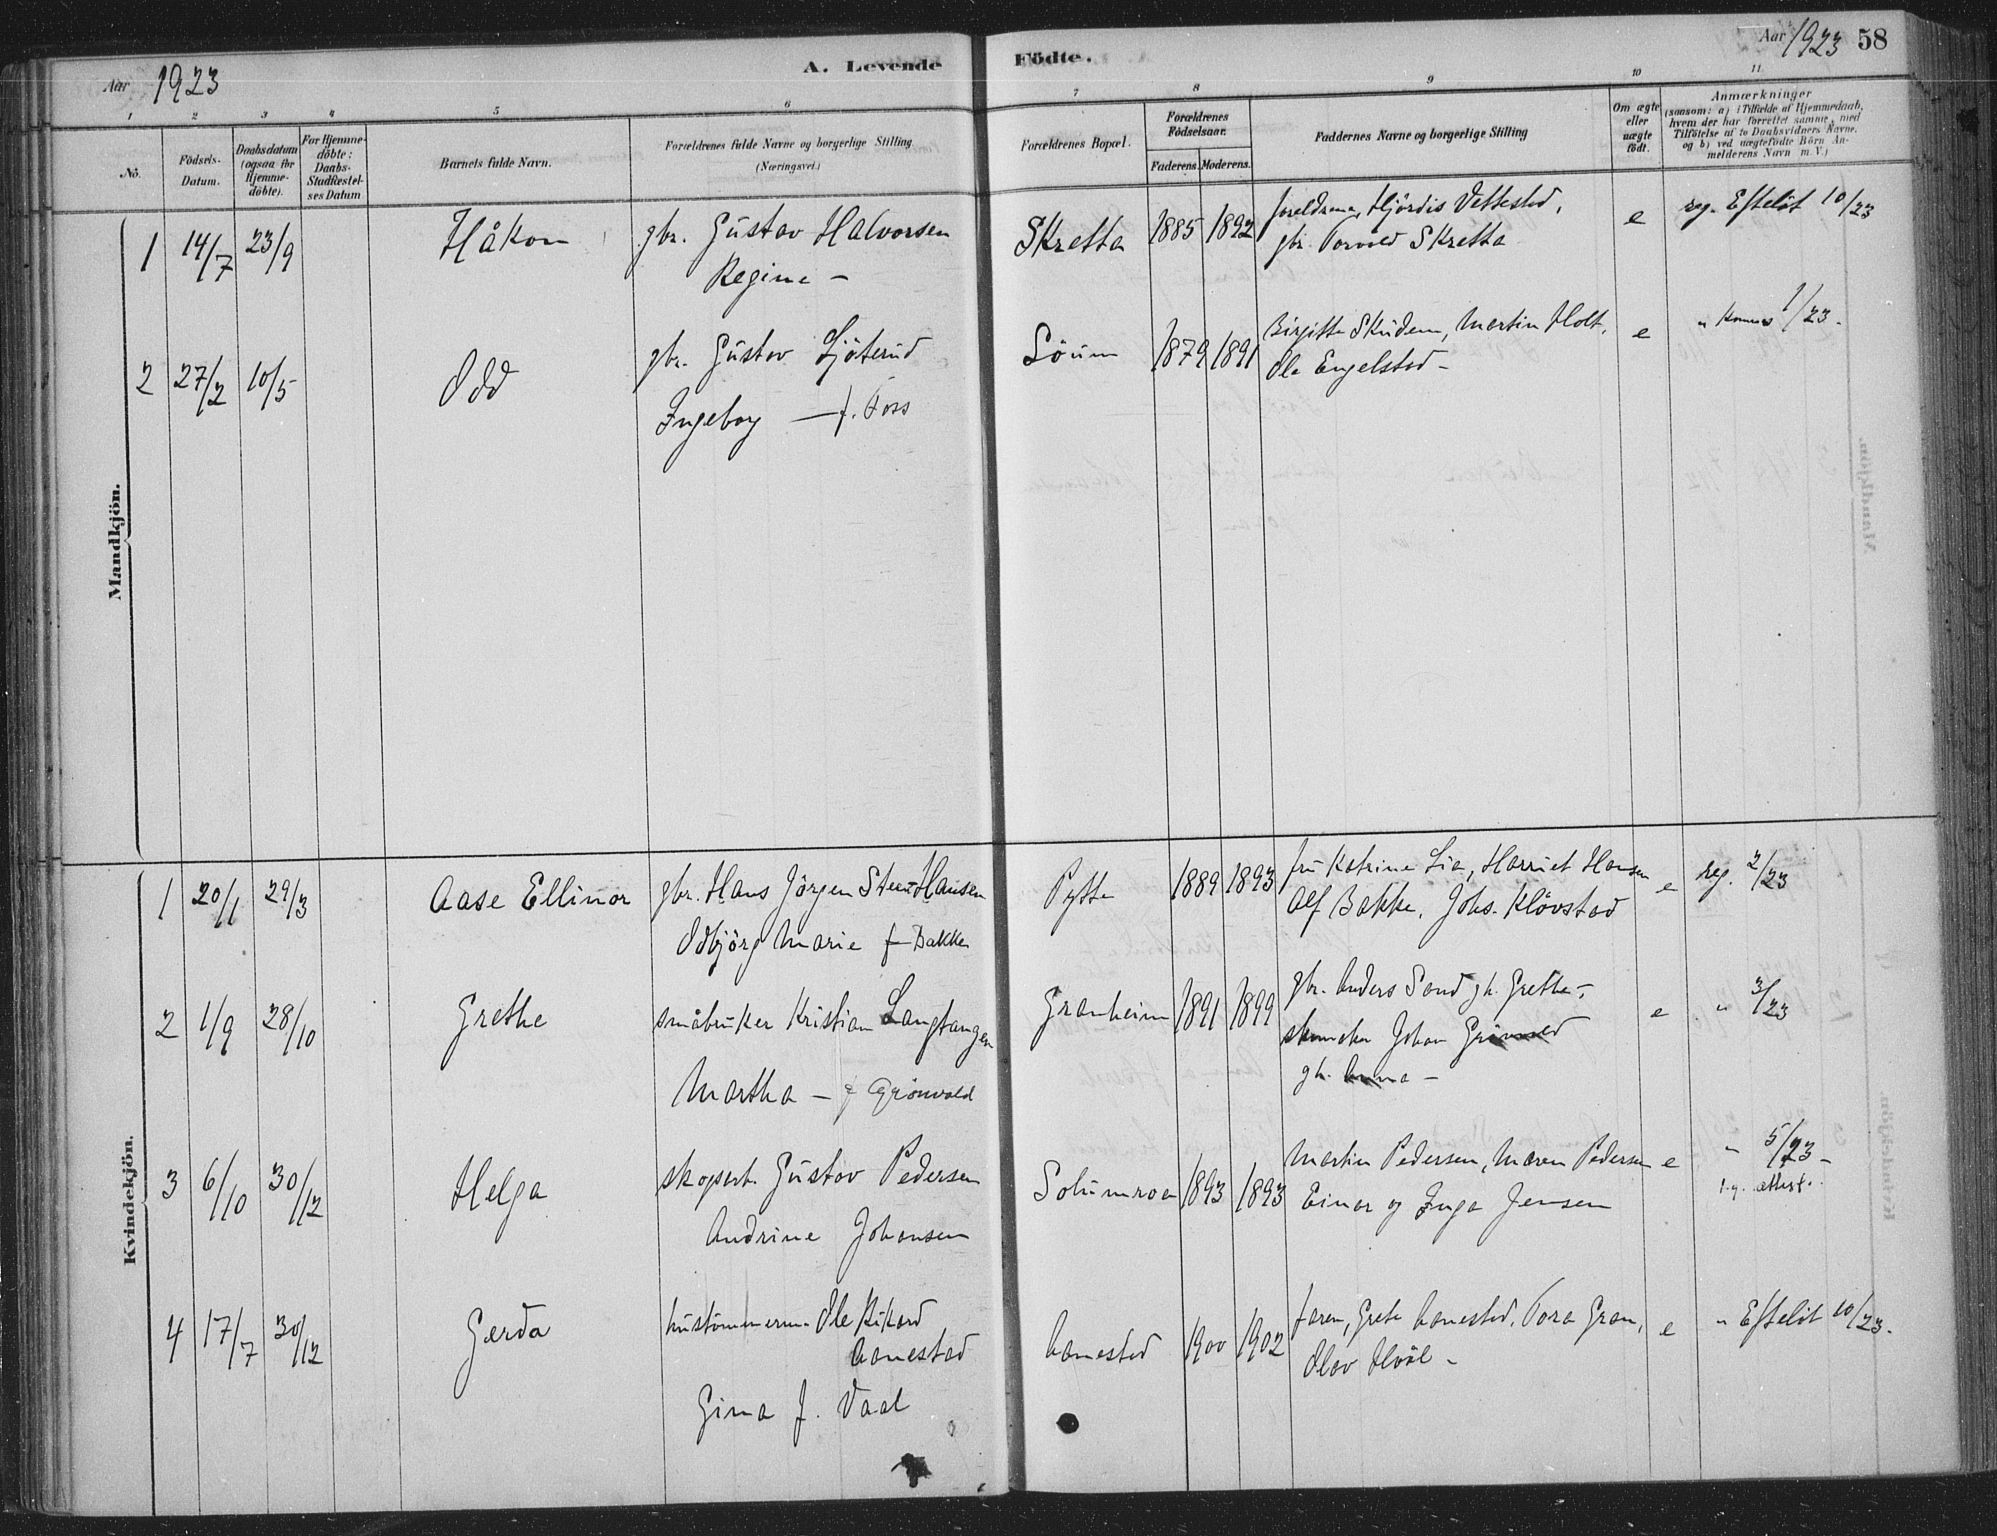 Aar 1923
A. Levende Födte.
Aar 1923 58
1 2 3 4 5 6 7 8 9 10 11
No.
Födsels-Datum.
Daabsdatum (ogsaa for Hjemme-döbte).
For Hjemme-döbte: Daabs-Stadfæstelses Datum
Barnets fulde Navn.
Forældrenes fulde Navne og borgerlige Stilling (Næringsvei.)
Forældrenes Bopæl.
Forældrenes Födselsaar.
Faderens. Moderens.
Faddernes Navne og borgerlige Stilling
Om ægte eller uægte födt.
Anmærkninger
(saasom: a) i Tilfælde af Hjemmedaab, hvem der har forrettet samme, med Tilföielse af to Daabsvidners Navne. og b) ved uægtefödte Börn Anmelderens Navn m. V.)
Mandkjön.
1 14/7 23/9 Håkon gbr. Gustav Halvorsen Skretta 1885 1892 foreldrene, Hjördis Vettestad, e reg. Efteløt 10/23
Regine - gbr. Torvald Skretta
2 27/2 10/5 Odd gbr. Gustav Ljöterud Söum 1879 1891 Birgitte Skudem, Martin Holt, e " Komnes 1/23.
Ingeborg - f. Foss Ole Engelstad -
Kvindekjön.
1 20/1 29/3 Aase Ellinor gbr. Hans Jörgen Steen-Hansen Pytte 1889 1893 fru Katrine Lia, Harriet Hansen e reg. 2/23
Odbjörg Marie f. Bakke Alf Bakke, Johs. Klövstad
2 1/9 28/10 Grethe småbruker Kristian Langtangen Granheim 1891 1899 gbr. Anders Sand gh. Grethe -, e " 3/23
Martha - f Grönvold Johan Grönvold
gh. Anna -
3 6/10 30/12 Helga skogsarb. Gustav Pedersen Solumroa 1893 1893 Martin Pedersen, Maren Pedersen e " 5/23 -
Andrine Johansen Einar og Inga Jensen l.g. attest.
4 17/7 30/12 Gerda hustömmerm. Ole Rikard Aanestad 1900 1902 faren, Grete Aanestad, Tora Gran, e " Efteløt 10/23.
Aanestad Olav Hvål -
Gina f. Vaal